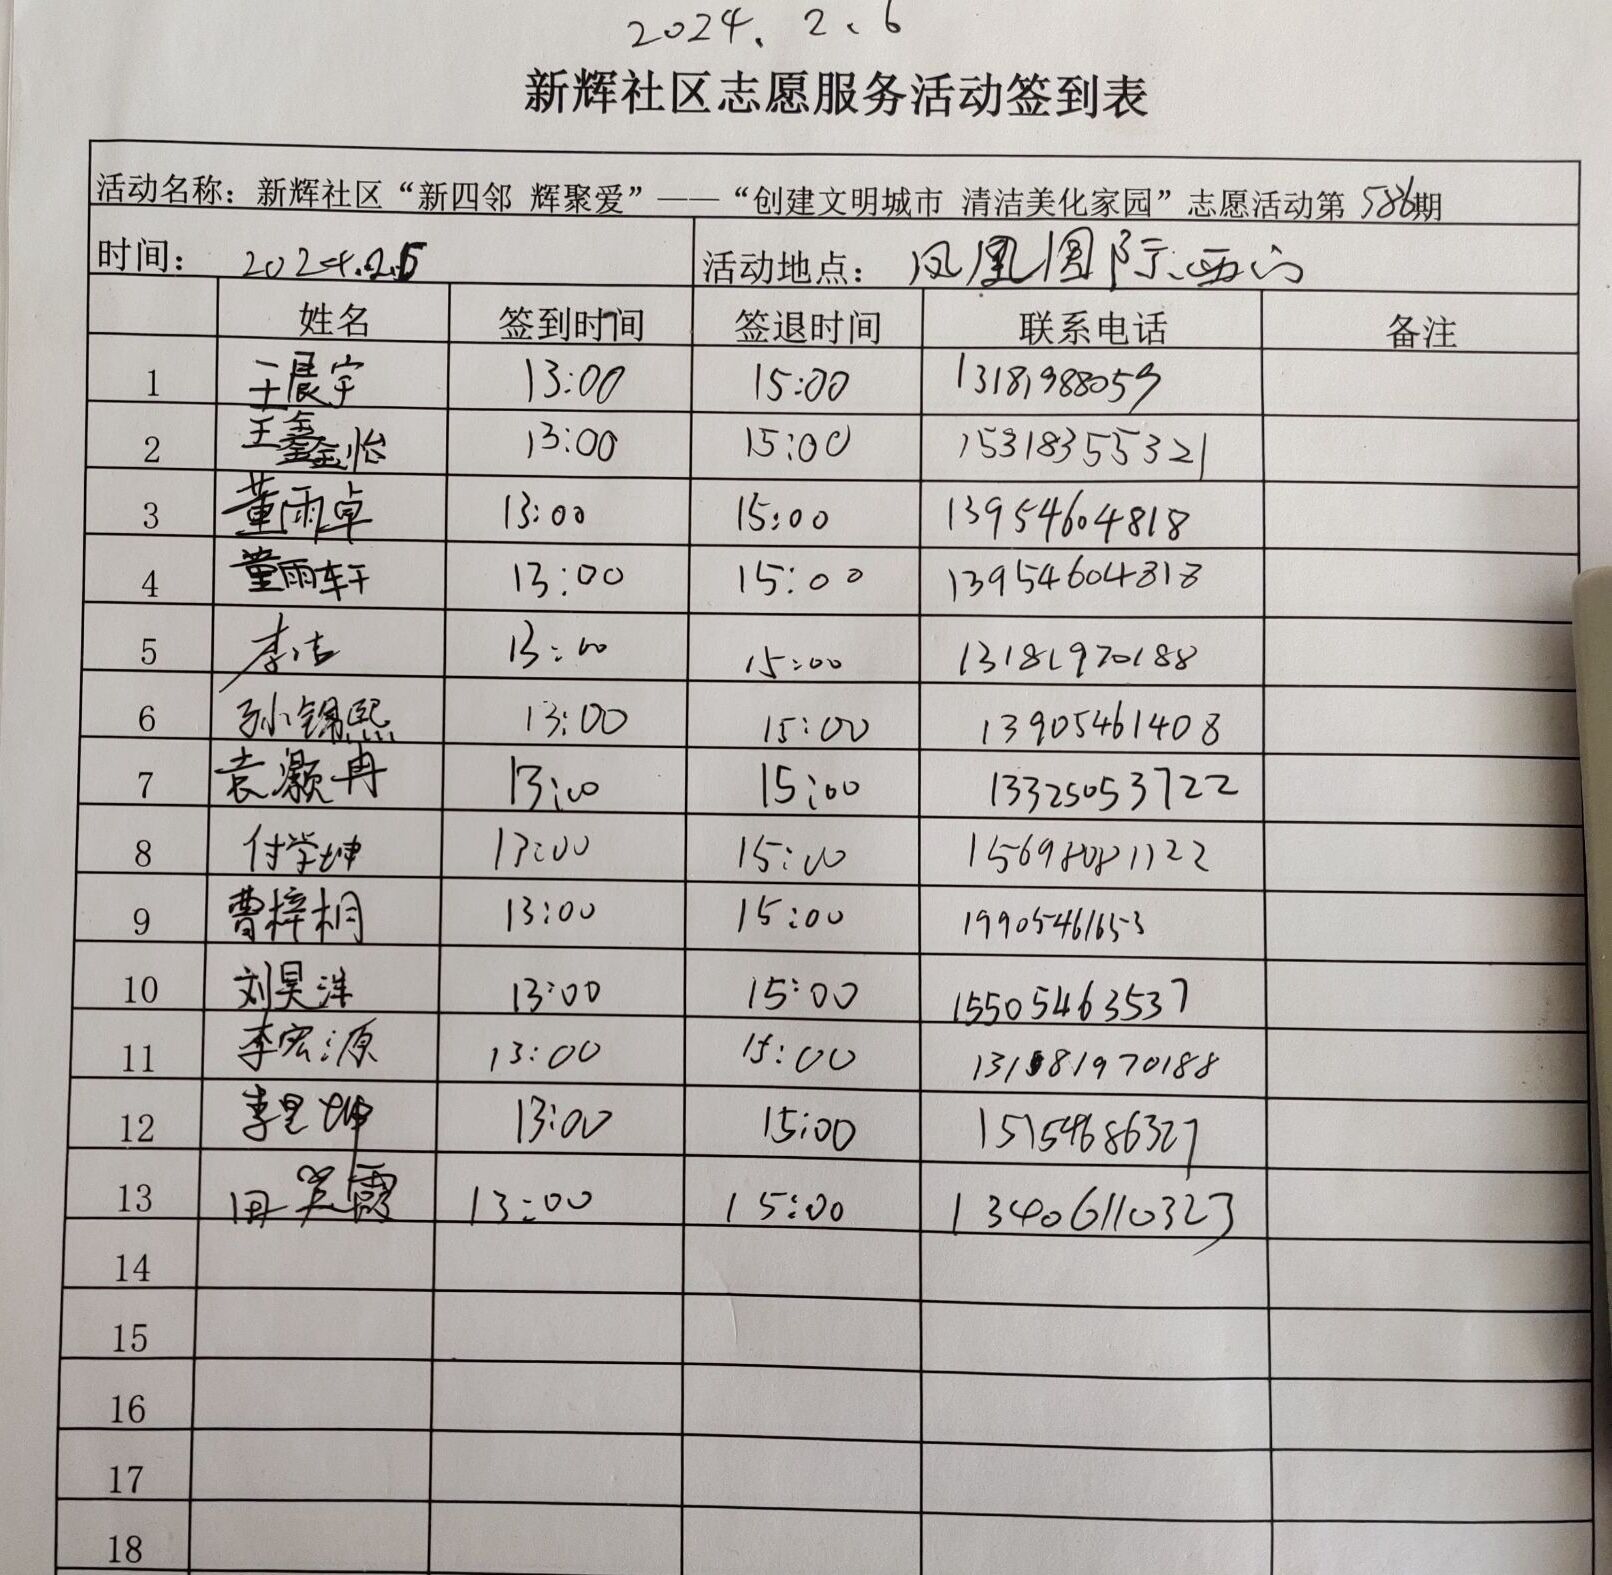 2024.2.6
新辉社区志愿服务活动签到表
活动名称：新辉社区“新四邻 辉聚爱”——“创建文明城市 清洁美化家园”志愿活动第586期
时间： 2024.2.5 活动地点： 凤凰国际西门
姓名 签到时间 签退时间 联系电话 备注
1 王晨宇 13:00 15:00 13181988059
2 王鑫怡 13:00 15:00 15318355321
3 董雨卓 13:00 15:00 13954604818
4 董雨轩 13:00 15:00 13954604818
5 李洁 13:00 15:00 13181970188
6 孙锦熙 13:00 15:00 13905461408
7 袁灏冉 13:00 15:00 13325053722
8 付学坤 13:00 15:00 15698081122
9 曹梓桐 13:00 15:00 19905461653
10 刘昊洋 13:00 15:00 15505463537
11 李宏源 13:00 15:00 13181970188
12 李昱坤 13:00 15:00 15154686327
13 田笑霞 13:00 15:00 13406110323
14
15
16
17
18